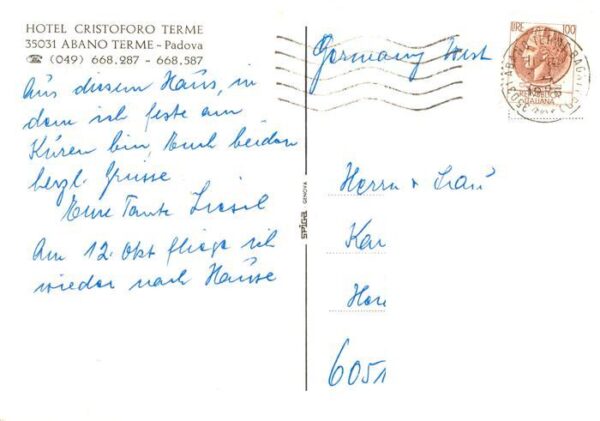 HOTEL CRISTOFORO TERME
35031 ABANO TERME - Padova
☎ (049) 668.287 - 668.587
Aus diesem Haus, in
dem ich feste am
Kuren bin, Euch beiden
herzl. Grüsse
Eure Tante Liesel
Am 12. Okt fliege ich
wieder nach Hause
SPIGA GENOVA
Germany West
LIRE 100
REPUBBLICA
ITALIANA
Herrn + Frau
Kar
Hon
6051